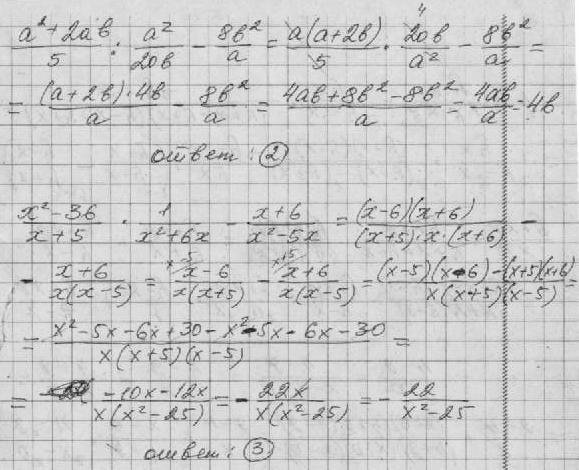 (a² + 2ab)/5 : a²/(20b) - 8b²/a = a(a+2b)/5 · 20b/a² - 8b²/a =
= (a+2b)·4b/a - 8b²/a = (4ab+8b²-8b²)/a = 4ab/a = 4b
ответ: ②
(x²-36)/(x+5) · 1/(x²+6x) - (x+6)/(x²-5x) = (x-6)(x+6)/((x+5)·x·(x+6)) -
- (x+6)/(x(x-5)) = (x-6)/(x(x+5)) - (x+6)/(x(x-5)) = ((x-5)(x-6)-(x+5)(x+6))/(x(x+5)(x-5)) =
= (x²-5x-6x+30-x²-5x-6x-30)/(x(x+5)(x-5)) =
= (-10x-12x)/(x(x²-25)) = - 22x/(x(x²-25)) = - 22/(x²-25)
ответ: ③